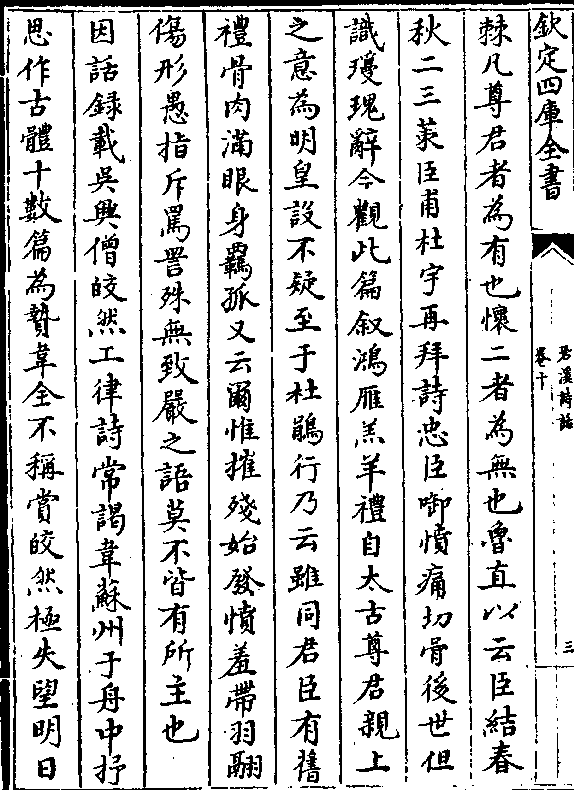 欽定四庫全書
䂬溪詩話
卷十
三
棘凡尊君者為有也懷二者為無也魯直以云臣結春
秋二三䇿臣甫杜宇再拜詩忠臣啣憤痛切骨後世但
識瓊瑰辭今觀此篇叙鴻雁羔羊禮自太古尊君親上
之意為明皇設不疑至于杜鵑行乃云雖同君臣有舊
禮骨肉滿眼身羈孤又云爾惟摧殘始發憤羞帶羽翮
傷形愚指斥罵詈殊無致嚴之語莫不皆有所主也
因話録載吳興僧皎然工律詩常謁韋蘇州于舟中抒
思作古體十數篇為贄韋全不稱賞皎然極失望明日